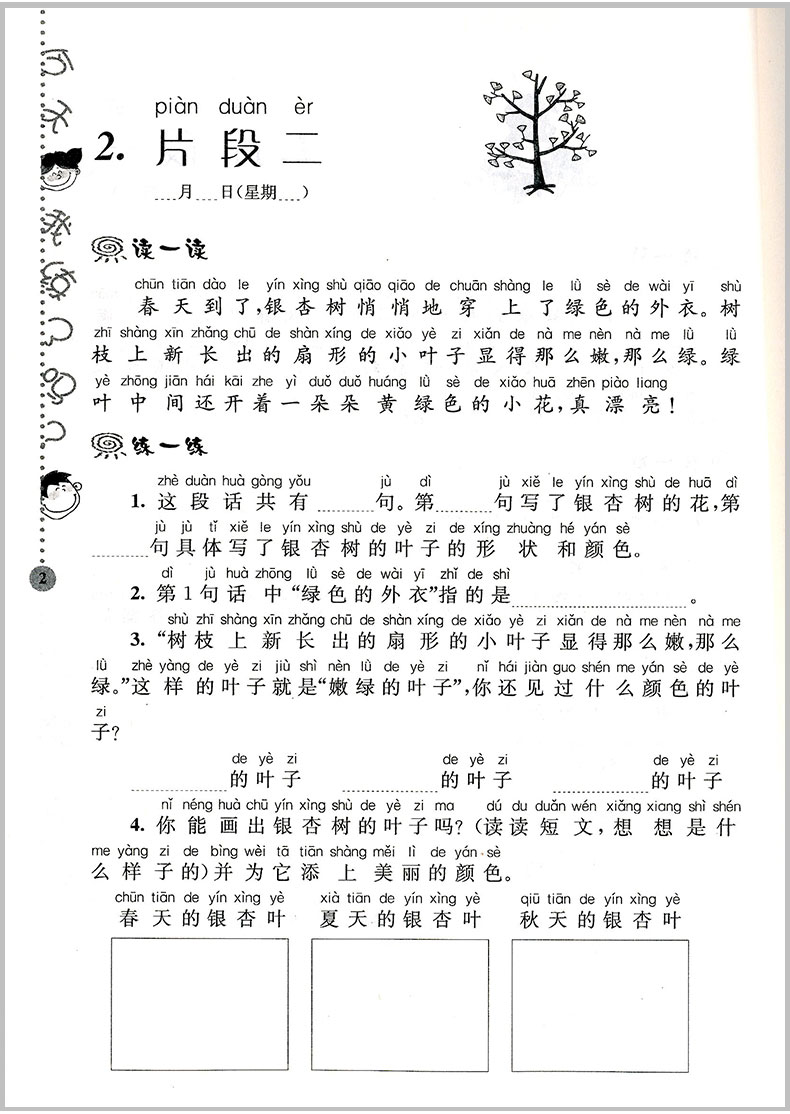 piàn duàn èr
2. 片段二
月 日(星期 )
读一读
chūn tiān dào le yín xìng shù qiāo qiāo de chuān shàng le lǜ sè de wài yī shù
春天到了,银杏树悄悄地穿上了绿色的外衣。树
zhī shàng xīn zhǎng chū de shàn xíng de xiǎo yè zi xiǎn de nà me nèn nà me lǜ lǜ
枝上新长出的扇形的小叶子显得那么嫩,那么绿。绿
yè zhōng jiān hái kāi zhe yì duǒ duǒ huáng lǜ sè de xiǎo huā zhēn piào liang
叶中间还开着一朵朵黄绿色的小花,真漂亮!
练一练
zhè duàn huà gòng yǒu jù dì jù xiě le yín xìng shù de huā dì
1. 这段话共有 句。第 句写了银杏树的花,第
jù jù tǐ xiě le yín xìng shù de yè zi de xíng zhuàng hé yán sè
句具体写了银杏树的叶子的形状和颜色。
dì jù huà zhōng lǜ sè de wài yī zhǐ de shì
2. 第1句话中“绿色的外衣”指的是 。
shù zhī shàng xīn zhǎng chū de shàn xíng de xiǎo yè zi xiǎn de nà me nèn nà me
3. “树枝上新长出的扇形的小叶子显得那么嫩,那么
lǜ zhè yàng de yè zi jiù shì nèn lǜ de yè zi nǐ hái jiàn guo shén me yán sè de yè
绿。”这样的叶子就是“嫩绿的叶子”,你还见过什么颜色的叶
zi
子?
de yè zi de yè zi de yè zi
的叶子 的叶子 的叶子
nǐ néng huà chū yín xìng shù de yè zi ma dú du duǎn wén xiǎng xiang shì shén
4. 你能画出银杏树的叶子吗?(读读短文,想想是什
me yàng zi de bìng wèi tā tiān shàng měi lì de yán sè
么样子的)并为它添上美丽的颜色。
chūn tiān de yín xìng yè xià tiān de yín xìng yè qiū tiān de yín xìng yè
春天的银杏叶 夏天的银杏叶 秋天的银杏叶
2